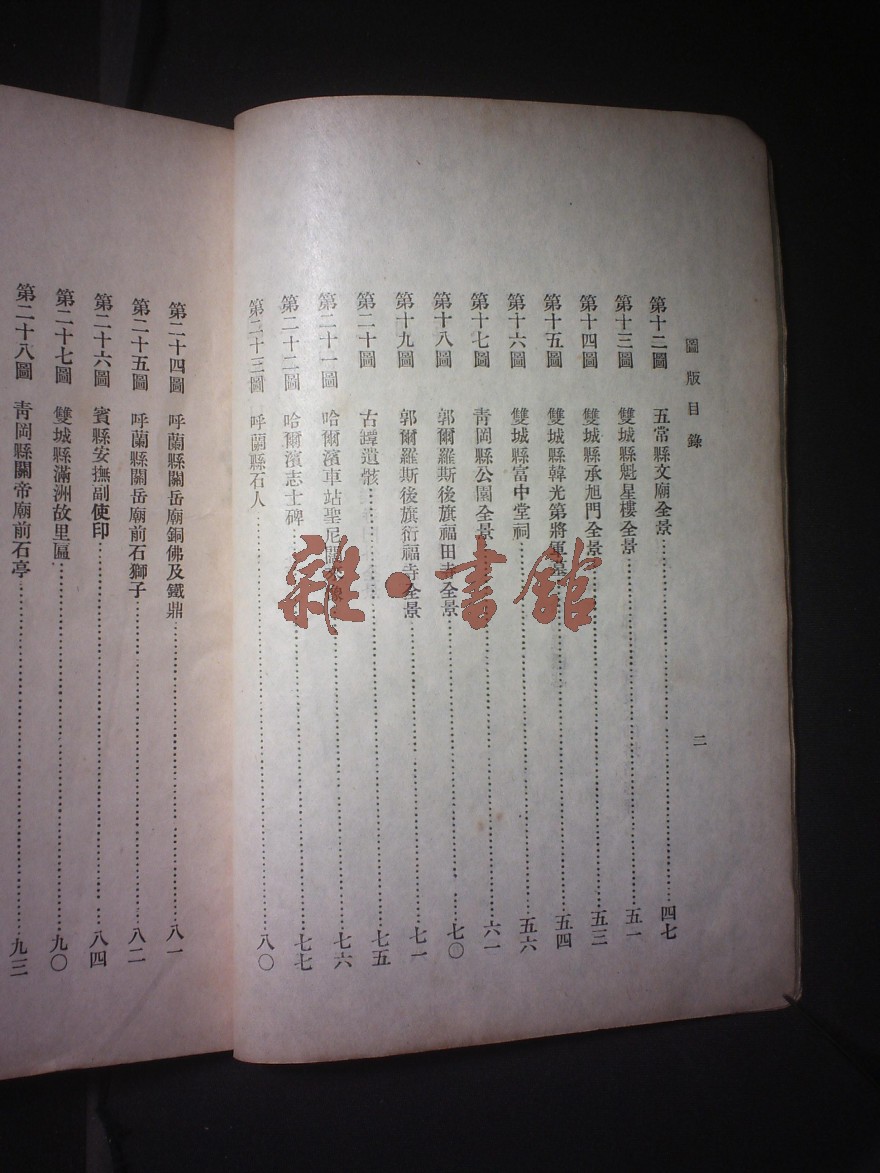 圖版目錄
第十二圖 五常縣文廟全景……四七
第十三圖 雙城縣魁星樓全景……五一
第十四圖 雙城縣承旭門全景……五三
第十五圖 雙城縣韓光第將軍墓……五四
第十六圖 雙城縣富中堂祠……五六
第十七圖 青岡縣公園全景……六一
第十八圖 郭爾羅斯後旗福田寺全景……七〇
第十九圖 郭爾羅斯後旗衍福寺全景……七一
第二十圖 古罈遺骸……七五
第二十一圖 哈爾濱車站聖尼……七六
第二十二圖 哈爾濱志士碑……七七
第二十三圖 呼蘭縣石人……八〇
二
第二十四圖 呼蘭縣關岳廟銅佛及鐵鼎……八一
第二十五圖 呼蘭縣關岳廟前石獅子……八二
第二十六圖 賓縣安撫副使印……八四
第二十七圖 雙城縣滿洲故里匾……九〇
第二十八圖 青岡縣關帝廟前石亭……九三
雜·書館